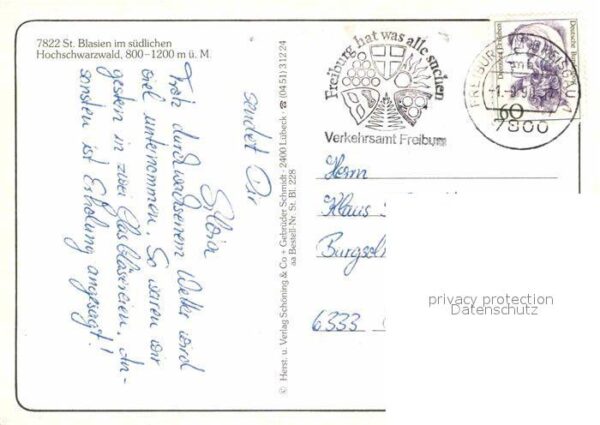 7822 St. Blasien im südlichen
Hochschwarzwald, 800–1200 m ü. M.
Trotz durchwachsenem Wetter wird
viel unternommen. So waren wir
gestern in zwei Glasbläsereien. An-
sonsten ist Erholung angesagt!
sendet Dir
Silvia
© Herst. u. Verlag Schöning & Co + Gebrüder Schmidt · 2400 Lübeck · ☎ (04 51) 3 12 24
aa Bestell-Nr. St. Bl. 228
Freiburg hat was alle suchen
Verkehrsamt Freiburg
FREIBURG BREISGAU 1
7800
60
Deutsche Bundespost
Herrn
Klaus
Burgsch
6333
privacy protection
Datenschutz